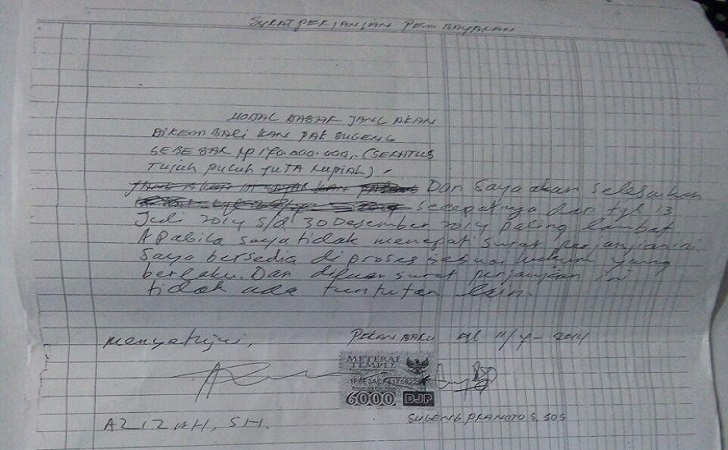 SURAT PERJANJIAN PEMBAYARAN
MODAL DASAR JANG AKAN
DIKEMBALI KAN PAK SUGENG
SEBESAR Rp 170.000.000,. (SERATUS
TUJUH PULUH JUTA RUPIAH).
Dan Saya akan selesaikan
secepatnya dari tgl 13
Juli 2014 s/d 30 Desember 2014 paling lambat
Apabila saya tidak menepati surat perjanjian
Saya bersedia di proses sesuai hukum yang
berlaku. Dan diluar surat perjanjian ini
tidak ada tuntutan lain.
Menyetujui,
PEKAN BARU
METERAI
TEMPEL
6000 DJP
AZIZAH, SH.
SUGENG PRANOTO S. SOS